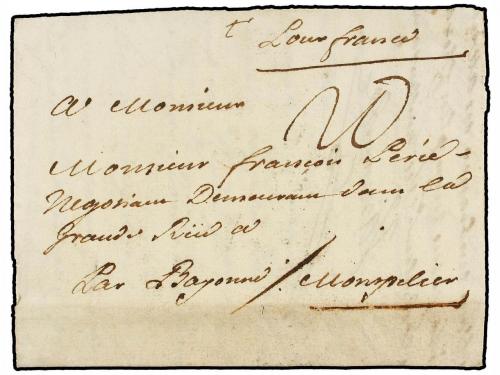 Pour france
A Monsieur
Monsieur françois Périe
Negosiant Demeurant dans La
grande Rüe a
Par Bayonne / Monpelier